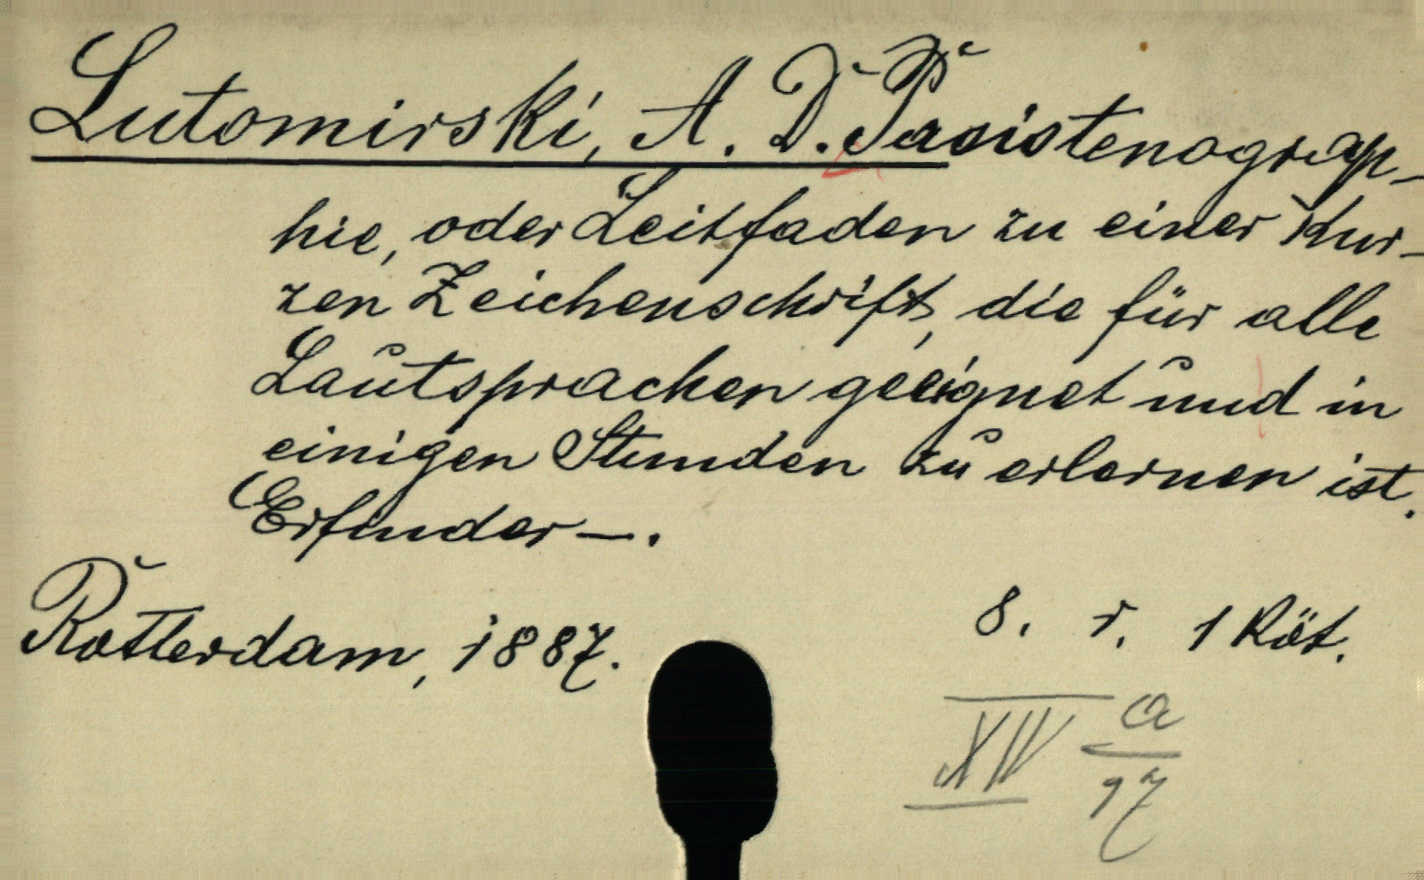 Lutomirski, A. D. Pasistenograp-
hie, oder Leitfaden zu einer kur-
zen Zeichenschrift, die für alle
Lautsprachen geeignet und in
einigen Stunden zu erlernen ist.
Erfinder —.
Rotterdam, 1887.
8. r. 1 Köt.
XIV a
97